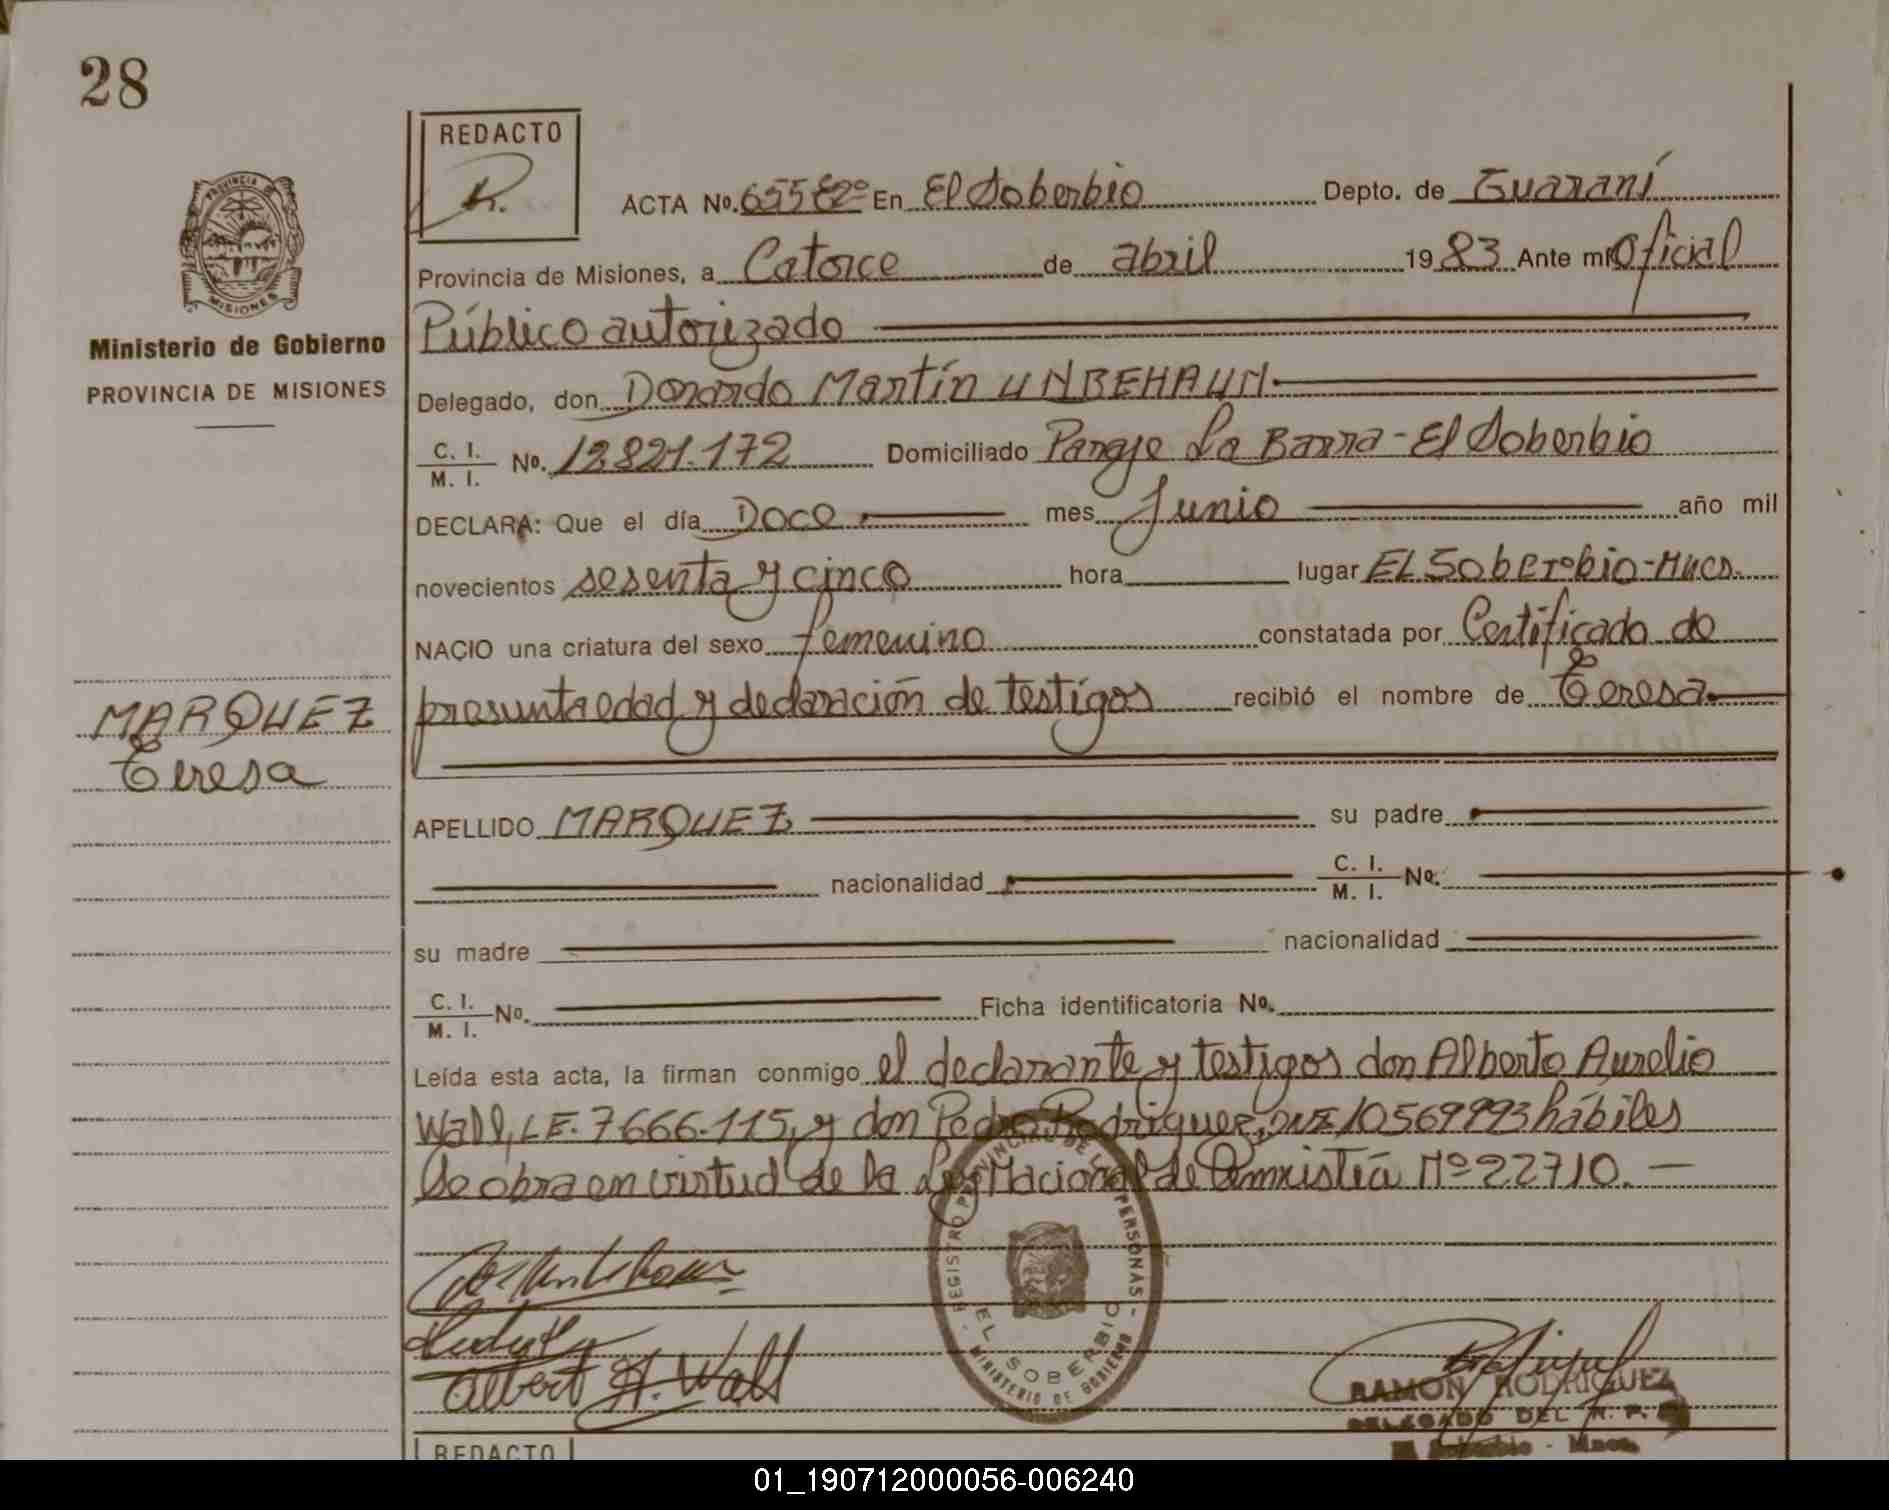 28
REDACTO
R.
ACTA No. 655 E2º En El Soberbio Depto. de Guaraní
Provincia de Misiones, a Catorce de abril 1983 Ante mí Oficial
Público autorizado
Delegado, don Donardo Martín UNBEHAUN
C. I. / M. I. No. 12.821.172 Domiciliado Paraje La Barra - El Soberbio
DECLARA: Que el día Doce mes Junio año mil
novecientos sesenta y cinco hora lugar EL Soberbio - Mnes.
NACIO una criatura del sexo femenino constatada por Certificado de
presunta edad y declaración de testigos recibió el nombre de Teresa
APELLIDO MARQUEZ su padre
nacionalidad C. I. / M. I. No.
su madre nacionalidad
C. I. / M. I. No. Ficha identificatoria No.
Leída esta acta, la firman conmigo el declarante y testigos don Alberto Aurelio
Wall, L.E. 7.666.115, y don Pedro Rodriguez, DNI 10569993 hábiles
Se obra en virtud de la Ley Nacional de Amnistía Nº 22710.
PROVINCIA DE MISIONES
Ministerio de Gobierno
PROVINCIA DE MISIONES
MARQUEZ
Teresa
REGISTRO PROVINCIAL DE LAS PERSONAS - EL SOBERBIO - MINISTERIO DE GOBIERNO
Albert A. Wall
RAMON RODRIGUEZ
DELEGADO DEL R. P.
El Soberbio - Mnes.
REDACTO
01_190712000056-006240